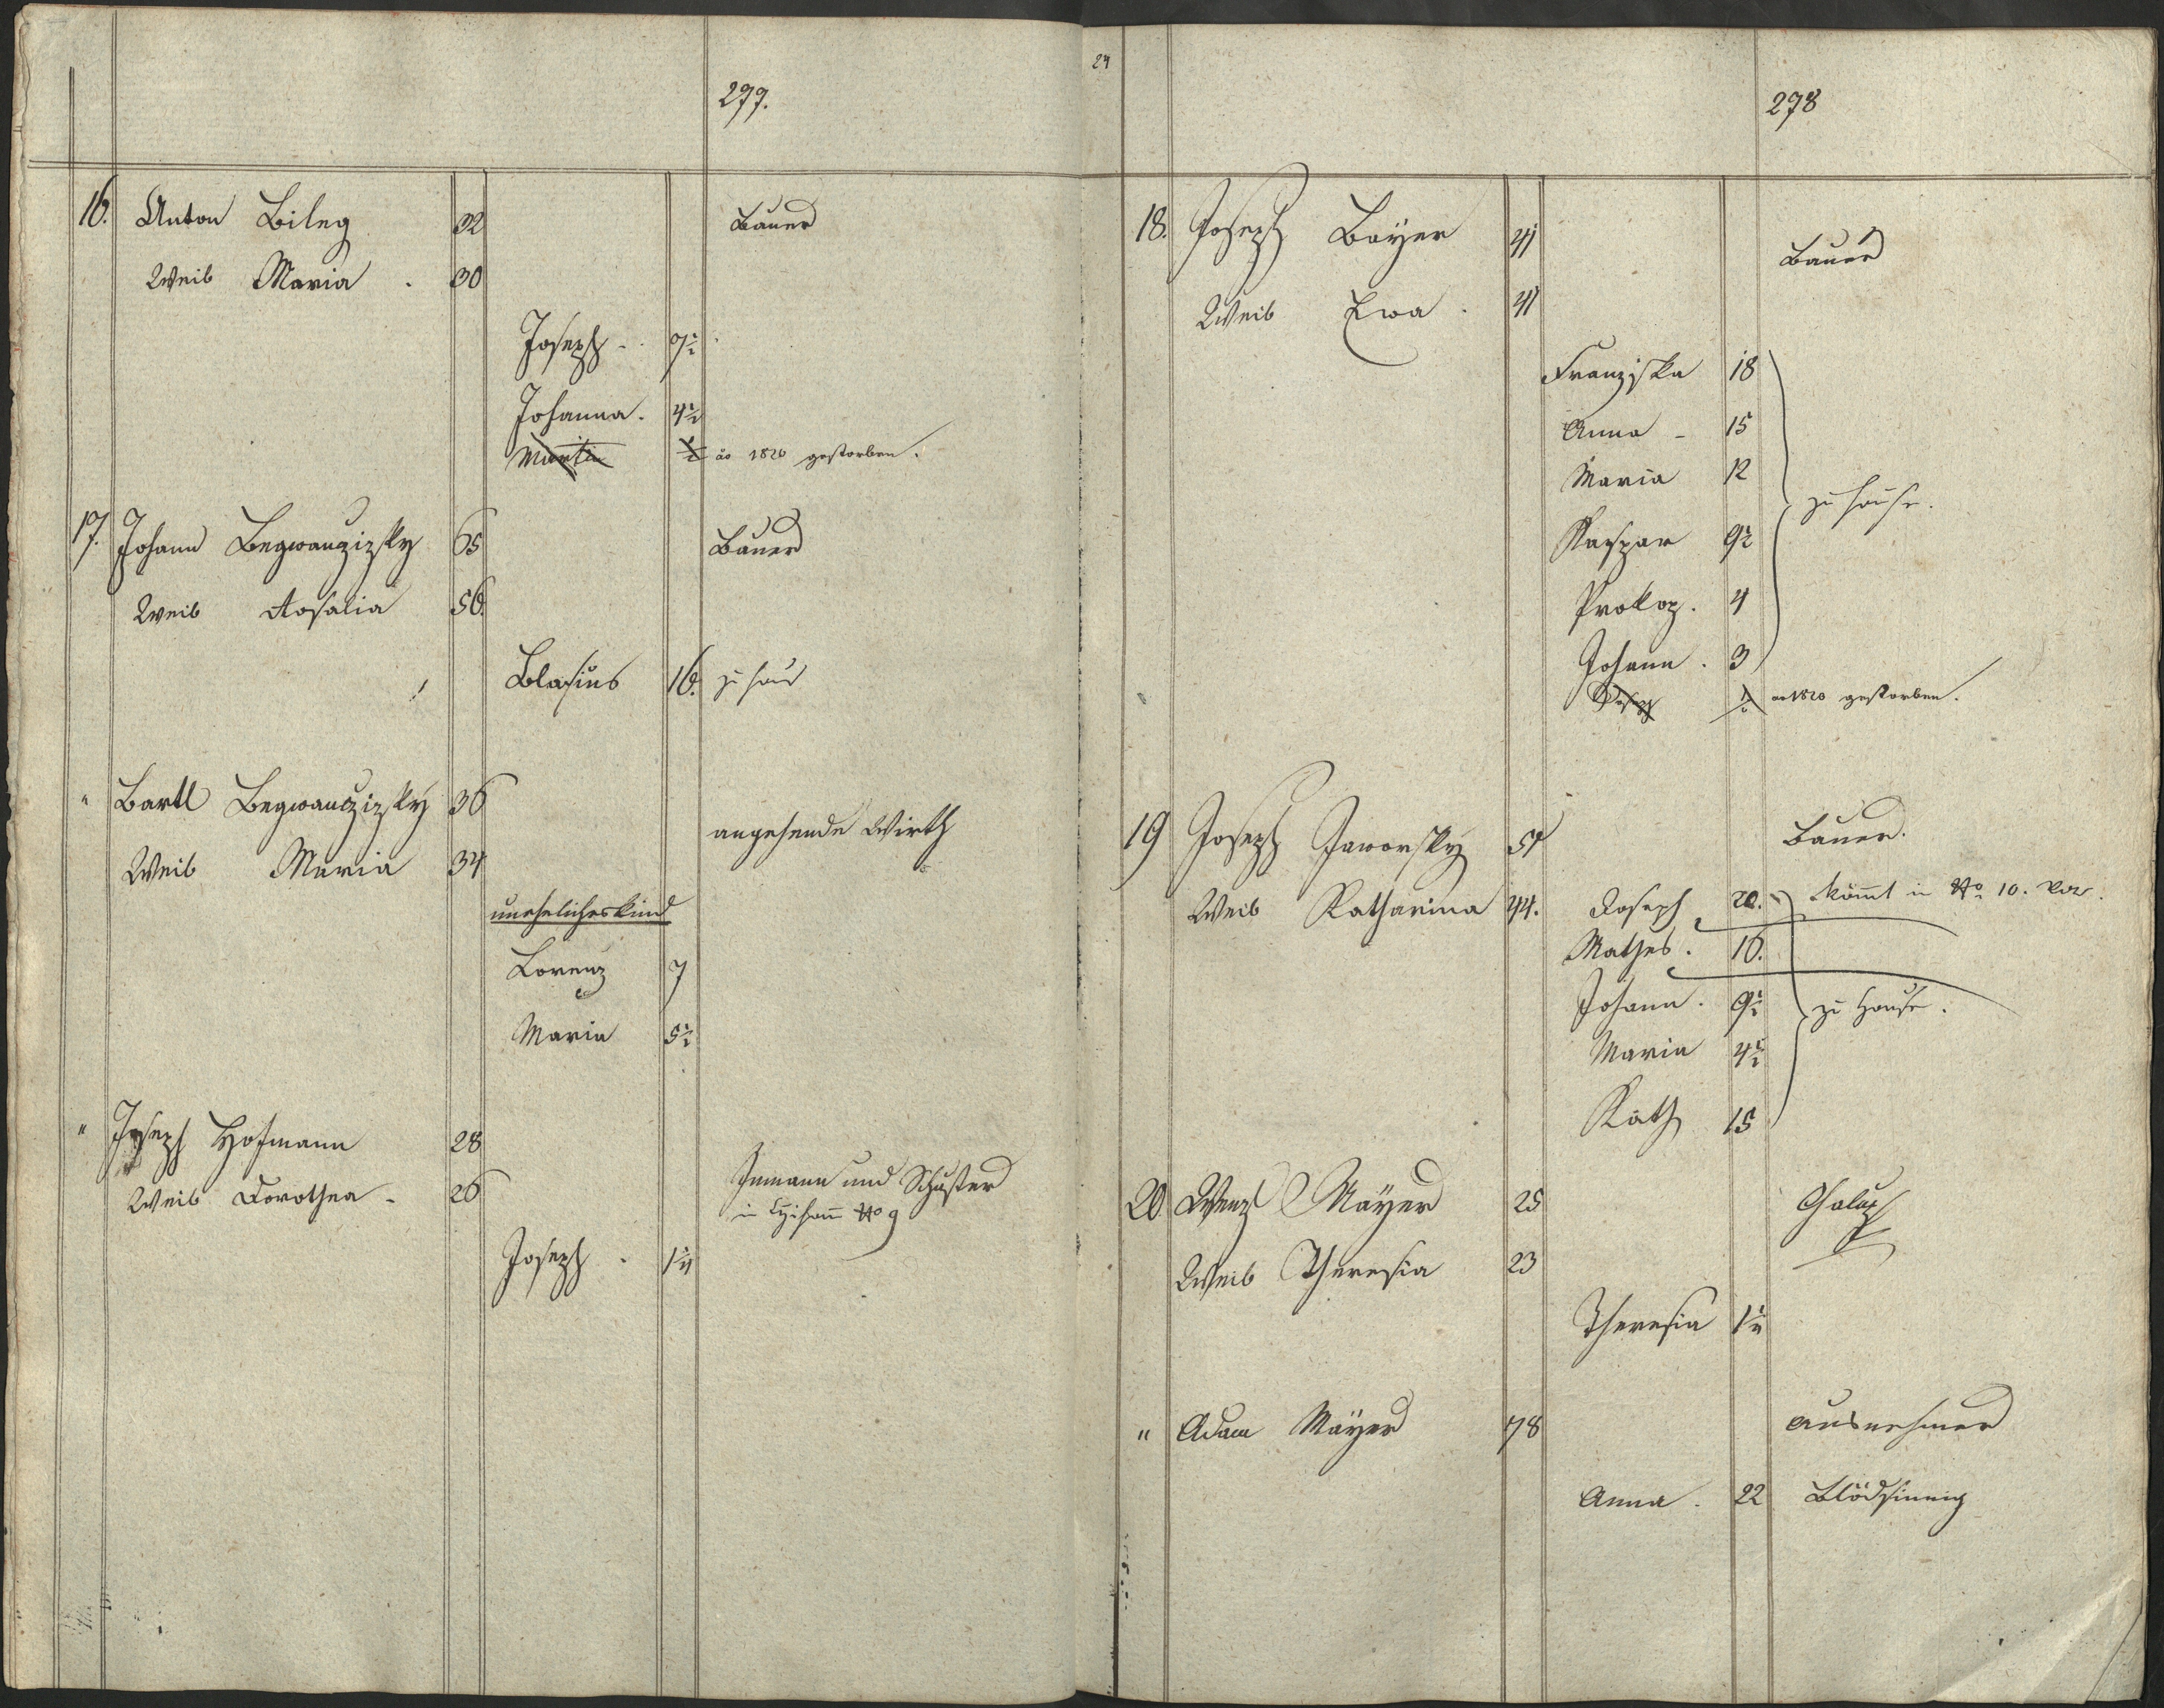 277.
16. Anton Bileg 32 Bauer
Weib Maria . 30
Joseph - 7½
Johanna . 4½
Martin ½ ao 1820 gestorben.
17. Johann Begwanzizky 65 Bauer
Weib Rosalia 56.
Blasius 16. zu haus
" Bartl Begwanczizky 36
angehende Wirth
Weib Maria 34
uneheliches kind
Lorenz 7
Maria 5½
" Joseph Hofmann 28
Inmann und Schuster
Weib Dorothea - 26
in No 9
Joseph . 1¼
24
278
18. Joseph Bayer 41
Bauer
Weib Ewa . 41
Franziska 18
Anna - 15
Maria 12
zu hause.
Kaspar 9½
Prokop . 4
Johann . 3
Joseph ½ ao 1820 gestorben.
19 Joseph Jaworsky 51 Bauer.
Weib Katharina 44. Joseph 20. kömt in No 10. vor.
Mathes . 16.
Johann . 9½ zu Hause .
Maria 4½
Kath 15
20 Wenzl Mäyer 25 Chalup
Weib Theresia 23
Theresia 1¼
" Adam Mäyer 78 Ausnehmer
Anna . 22 Blödsinnig